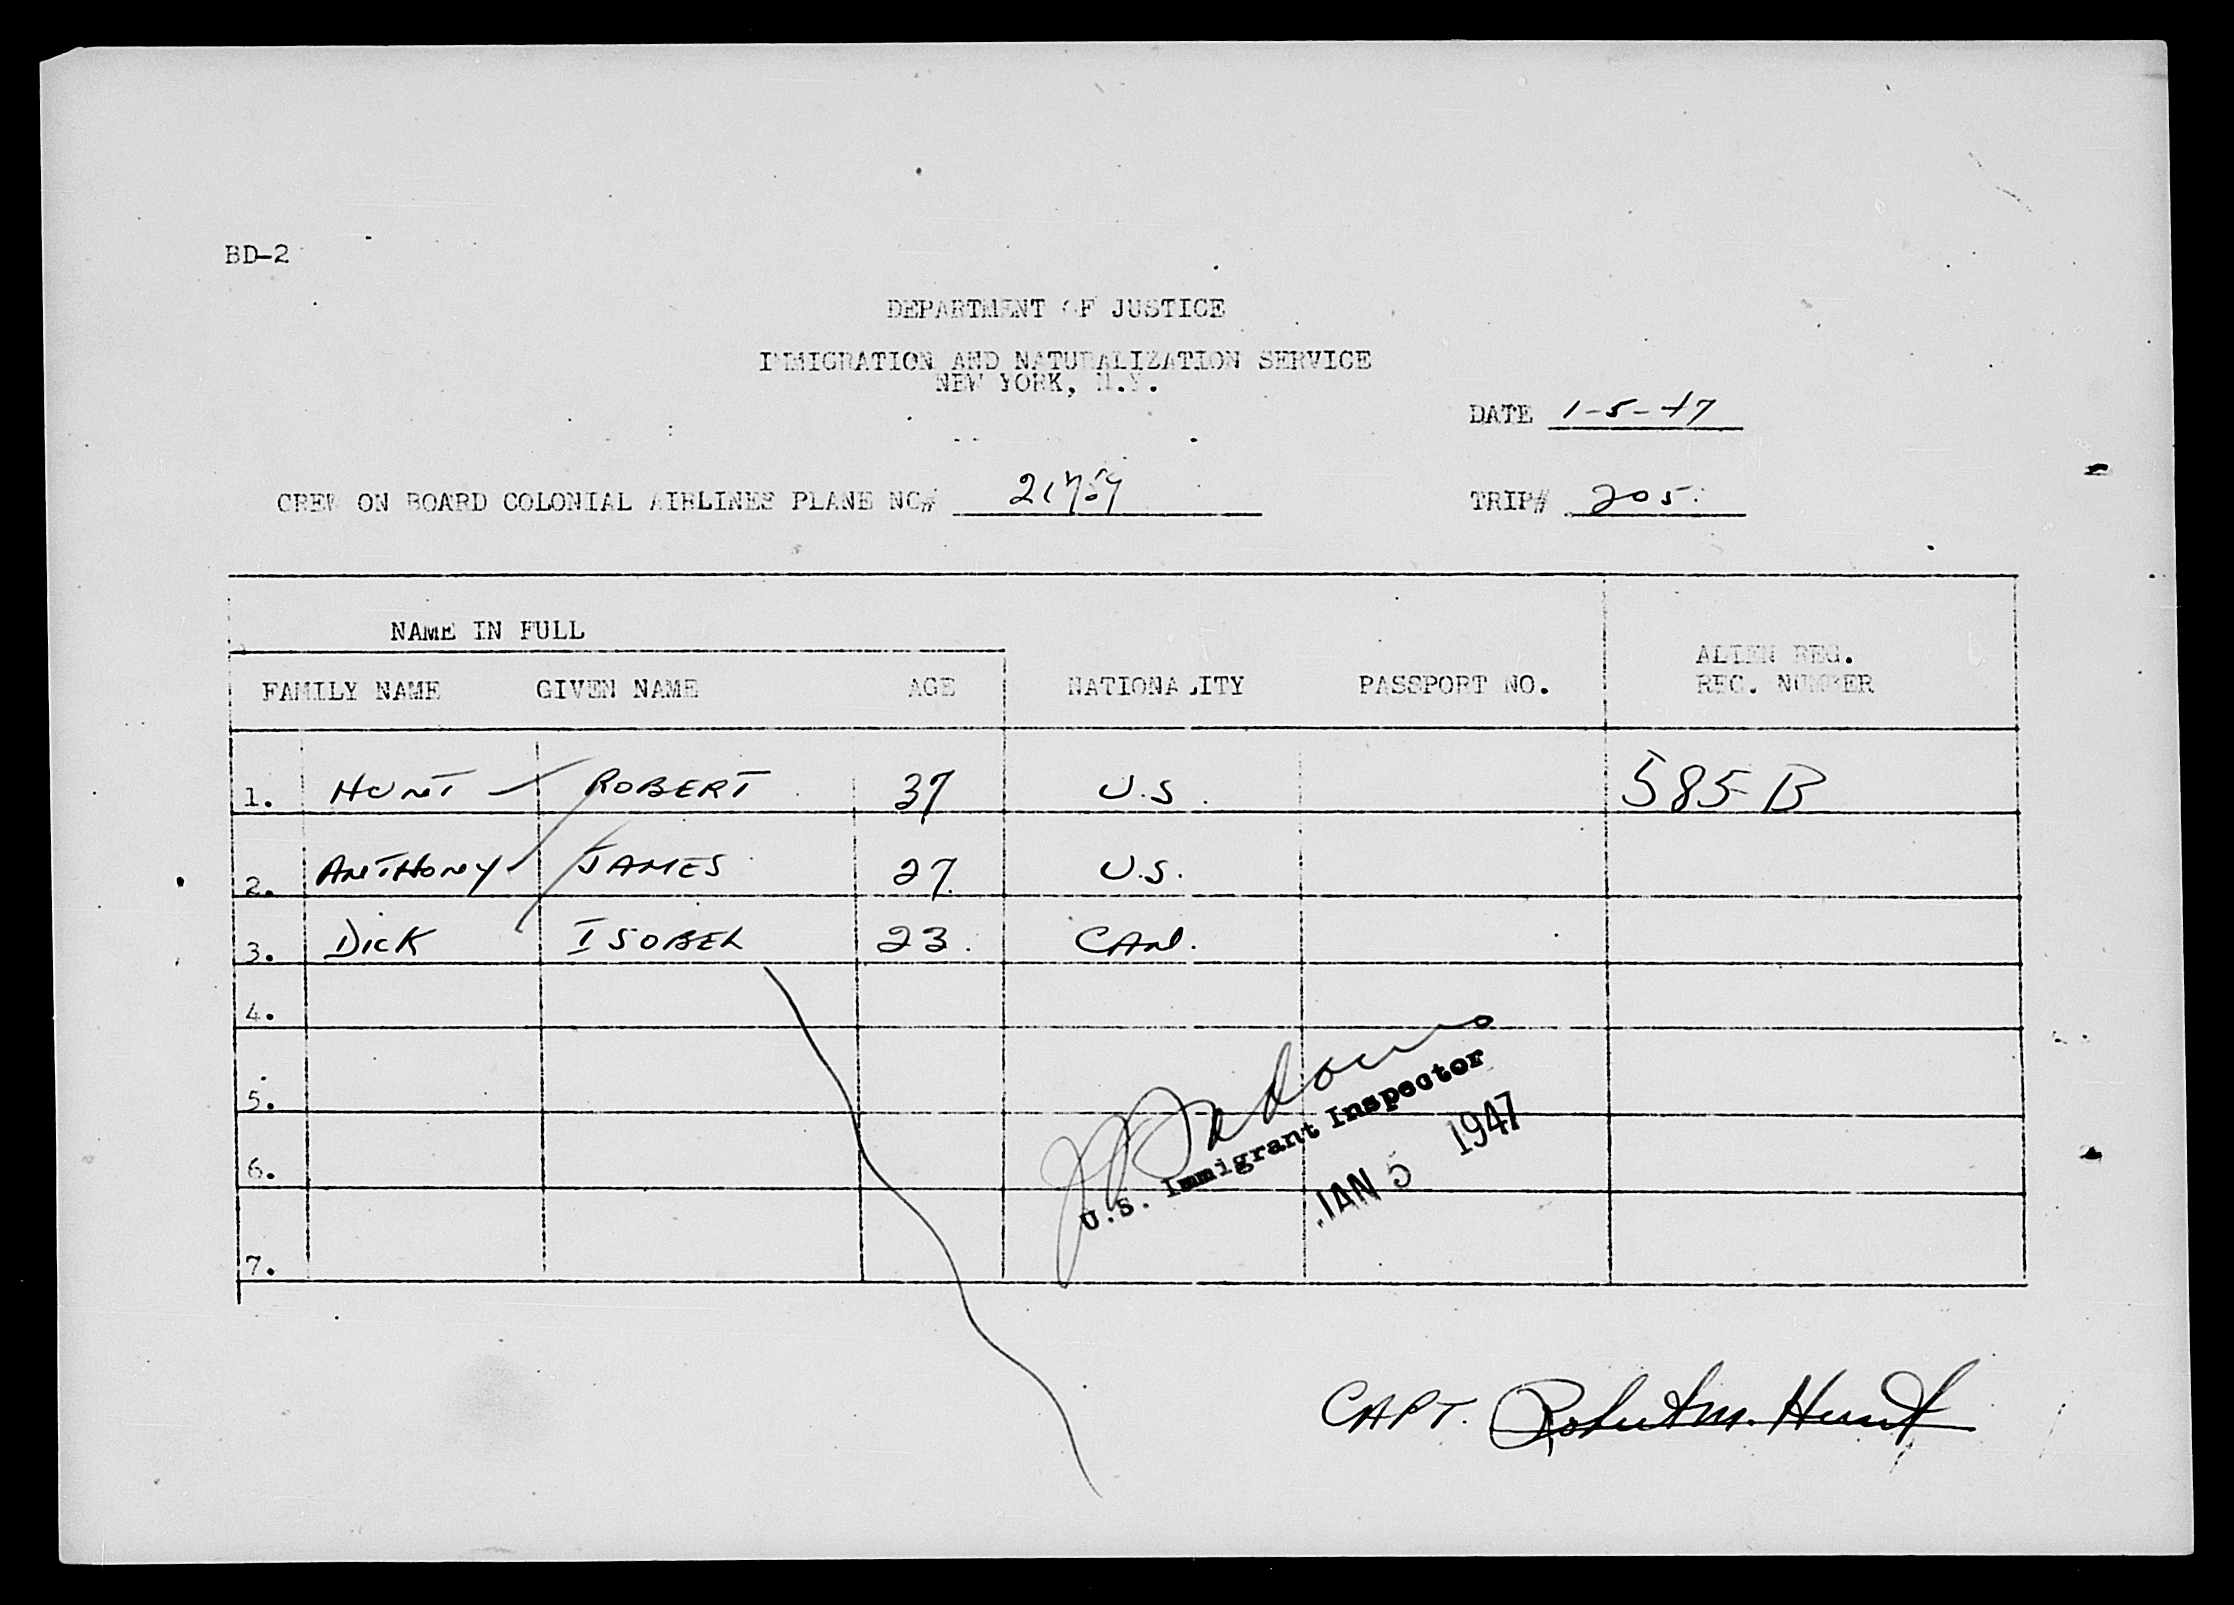 BD-2
DEPARTMENT OF JUSTICE
IMMIGRATION AND NATURALIZATION SERVICE
NEW YORK, N.Y.
DATE 1-5-47
CREW ON BOARD COLONIAL AIRLINES PLANE NO#
TRIP# 205.
NAME IN FULL
FAMILY NAME GIVEN NAME AGE NATIONALITY PASSPORT NO. ALIEN REG. REG. NUMBER
1. HUNT ROBERT 37 U.S. 585-B
2. ANTHONY JAMES 27 U.S.
3. DICK ISOBEL 23. CAN.
4.
5.
6.
7.
U.S. Immigrant Inspector
JAN 5 1947
CAPT. Robert M. Hunt